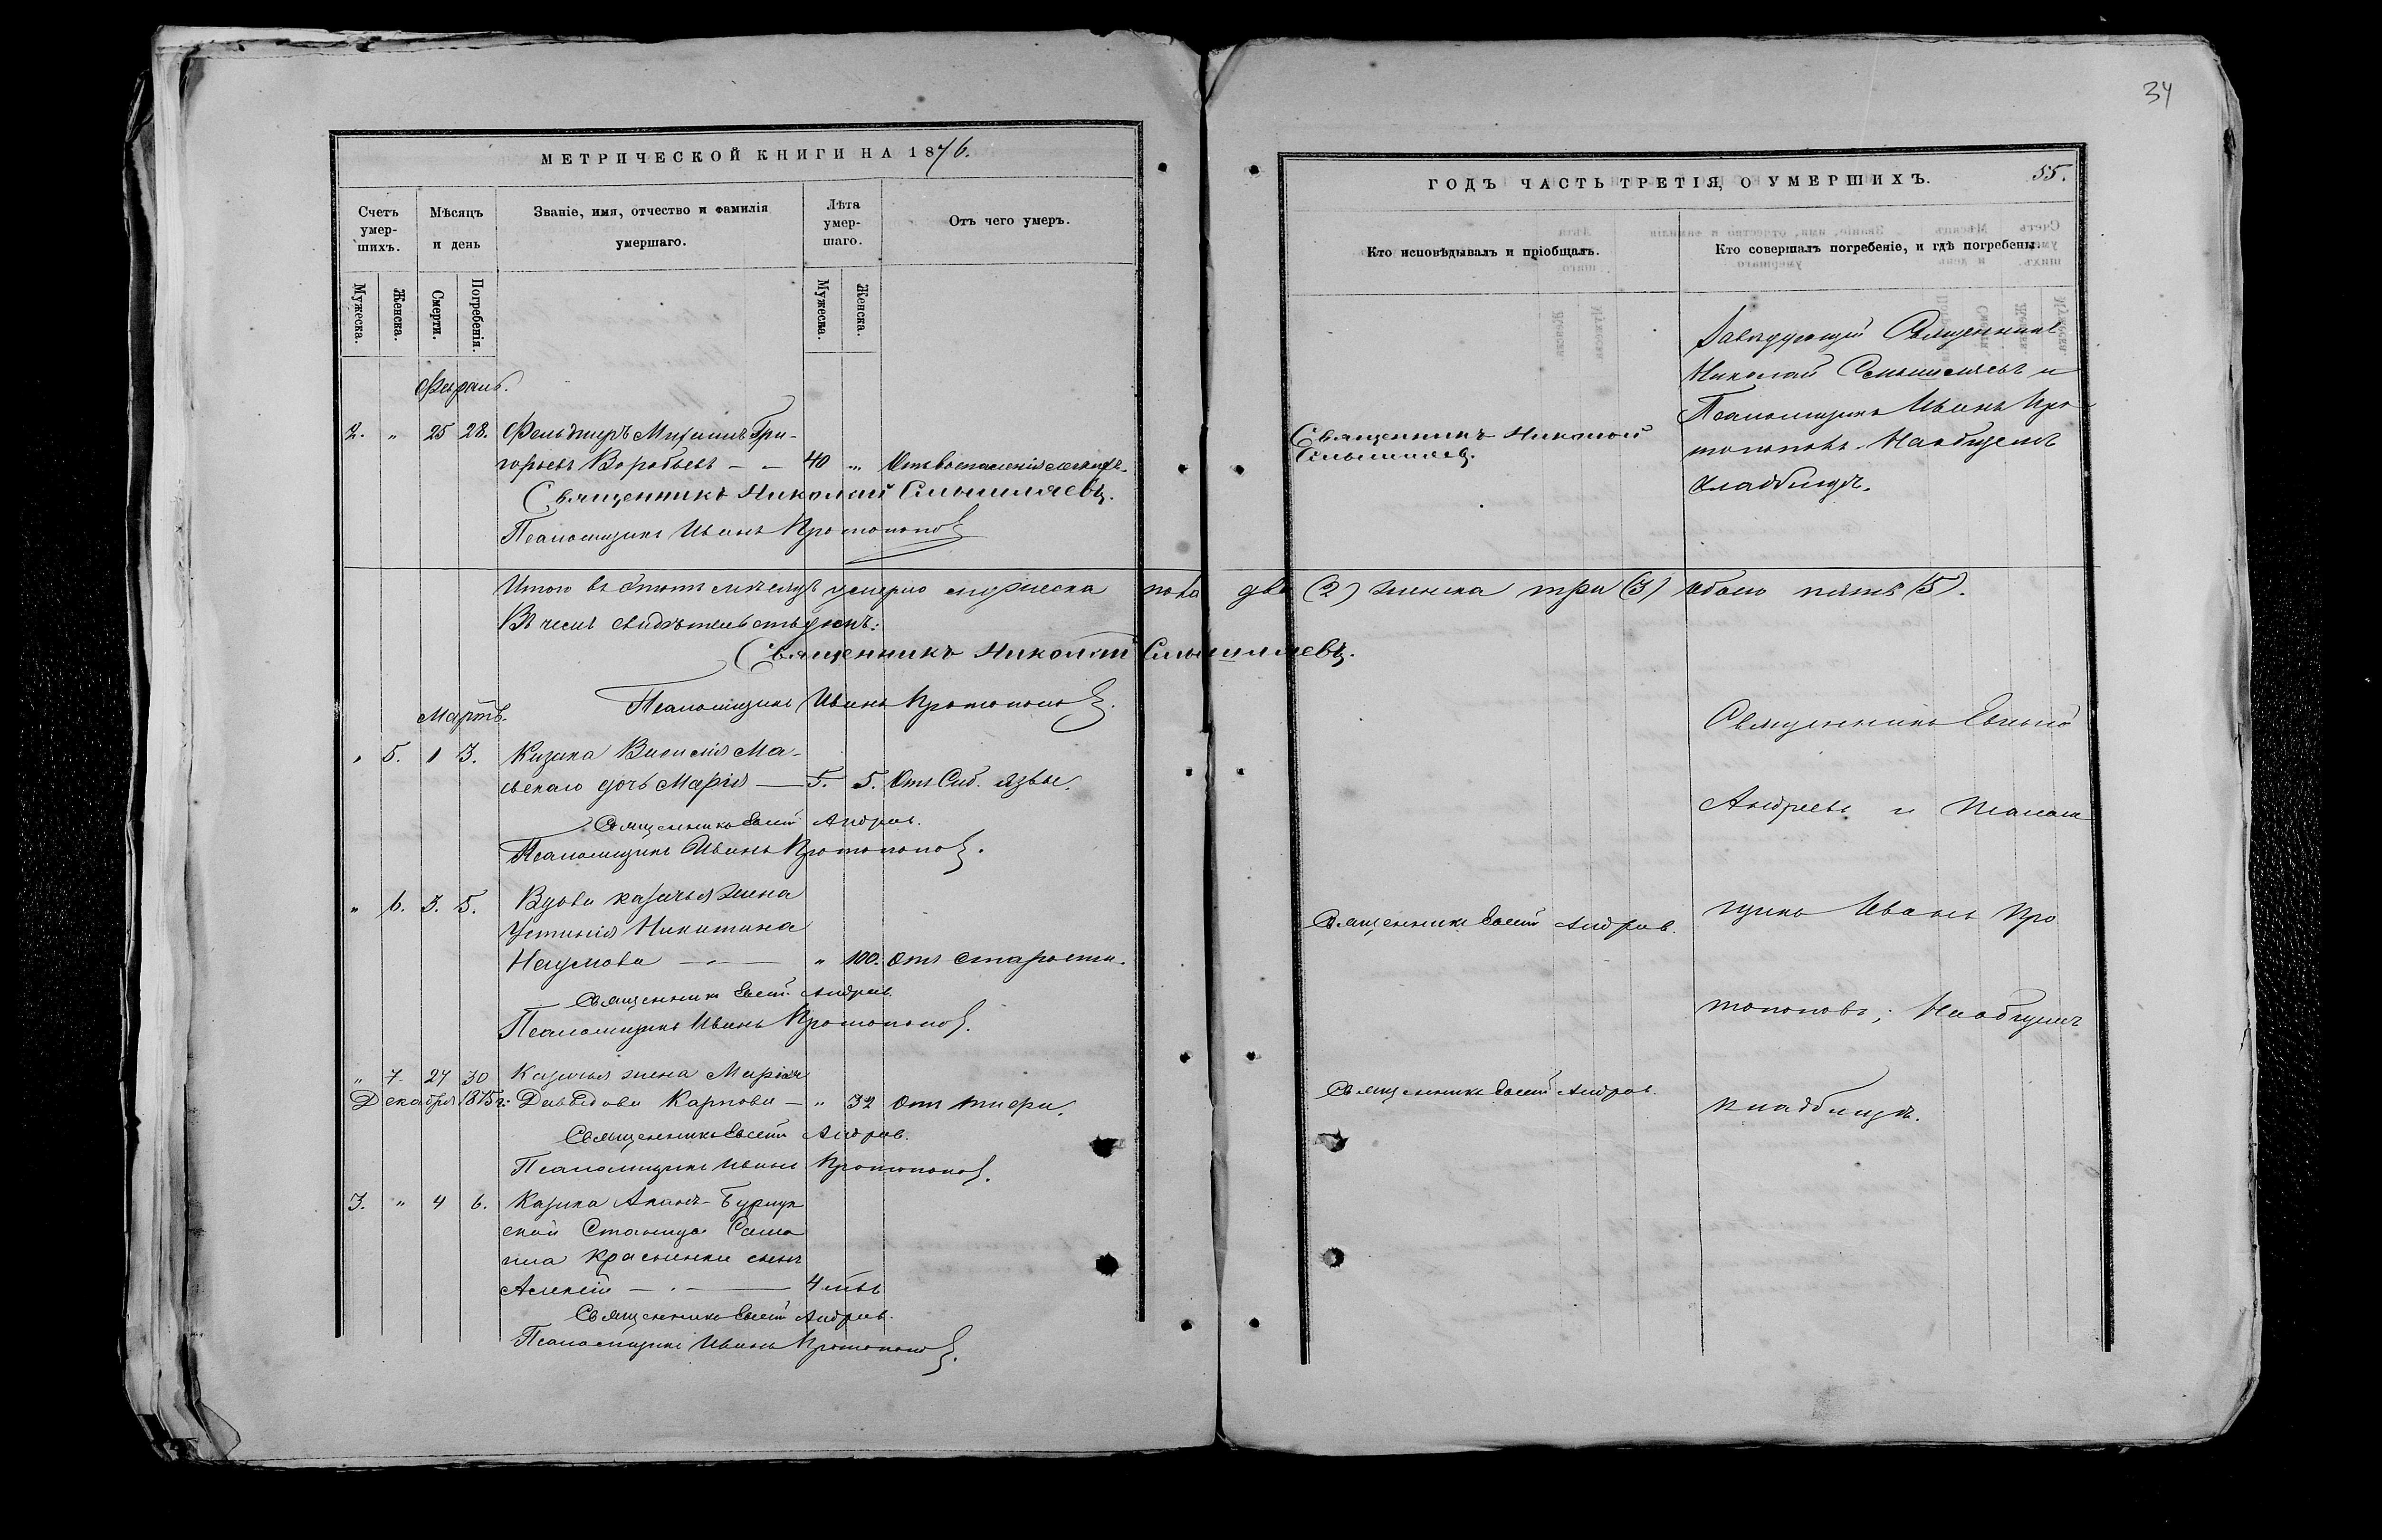 34
МЕТРИЧЕСКОЙ КНИГИ НА 1876.
Счетъ умер-шихъ.
Мѣсяцъ и день
Званіе, имя, отчество и фамилія умершаго.
Лѣта умер-шаго.
Отъ чего умеръ.
Мужеска.
Женска.
Смерти.
Погребенія.
Мужеска.
Женска.
Февраль.
2. " 25 28. Фельдшеръ Михаилъ Гри-
горьевъ Воробьевъ — 40 " Отъ воспаленія легкихъ.
Священникъ Николай Смышляевъ.
Псаломщикъ Иванъ Протопоповъ
Итого въ этотъ мѣсяцъ умерло мужеска пола два (2) женска три (3) обоего пять (5).
Въ чемъ свидѣтельствуемъ:
Священникъ Николай Смышляевъ.
Псаломщикъ Иванъ Протопоповъ.
Мартъ.
" 5. 1 3. Казака Василія Ма-
дочь Марія — 5. 5. Отъ Сиб. язвы.
Священникъ Андреев.
Псаломщикъ Иванъ Протопоповъ.
" 6. 3. 5. Вдова казачья жена
Устинія Никитина
Наумова — " 100. Отъ старости.
Священникъ Андреев.
Псаломщикъ Иванъ Протопоповъ.
" 7. 27 30 Казачья жена Марія
Декабря 1875 г. Давыдова Карпова — " 32 Отъ
Священникъ Андреев.
Псаломщикъ Иванъ Протопоповъ.
3. " 4 6. Казака
ской Станицы
сынъ
Алексѣй — 4 лѣтъ
Священникъ Андреев.
Псаломщикъ Иванъ Протопоповъ.
ГОДЪ ЧАСТЬ ТРЕТІЯ, О УМЕРШИХЪ.
55.
Кто исповѣдывалъ и пріобщалъ.
Кто совершалъ погребеніе, и гдѣ погребены.
Священникъ Николай
Смышляевъ.
Завѣдующій Священникъ
Николай Смышляевъ и
Псаломщикъ Иванъ Про-
топоповъ. На общемъ
кладбищѣ.
Священникъ
Андреевъ и Псалом
щикъ Иванъ Про
топоповъ; На общемъ
кладбищѣ.
Священникъ Андреев.
Священникъ Андреев.